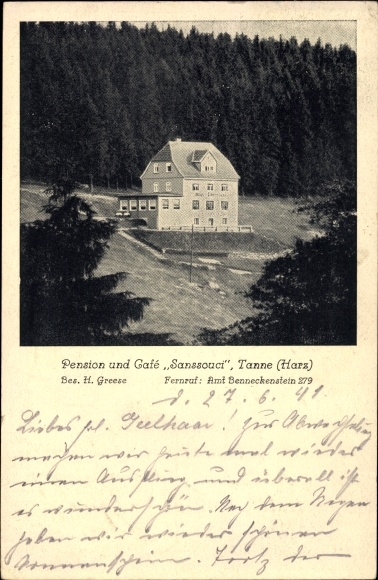 Pension und Café „Sanssouci", Tanne (Harz)
Bes. H. Greese Fernruf: Amt Benneckenstein 279
d. 27. 6. 41
Liebes Frl. Geelhaar! Zur Abwechslung
machen wir heute mal wieder
einen Ausflug und überall ist
es wunderschön. Nach dem Regen
haben wir wieder schönen
Sonnenschein. Trotz der